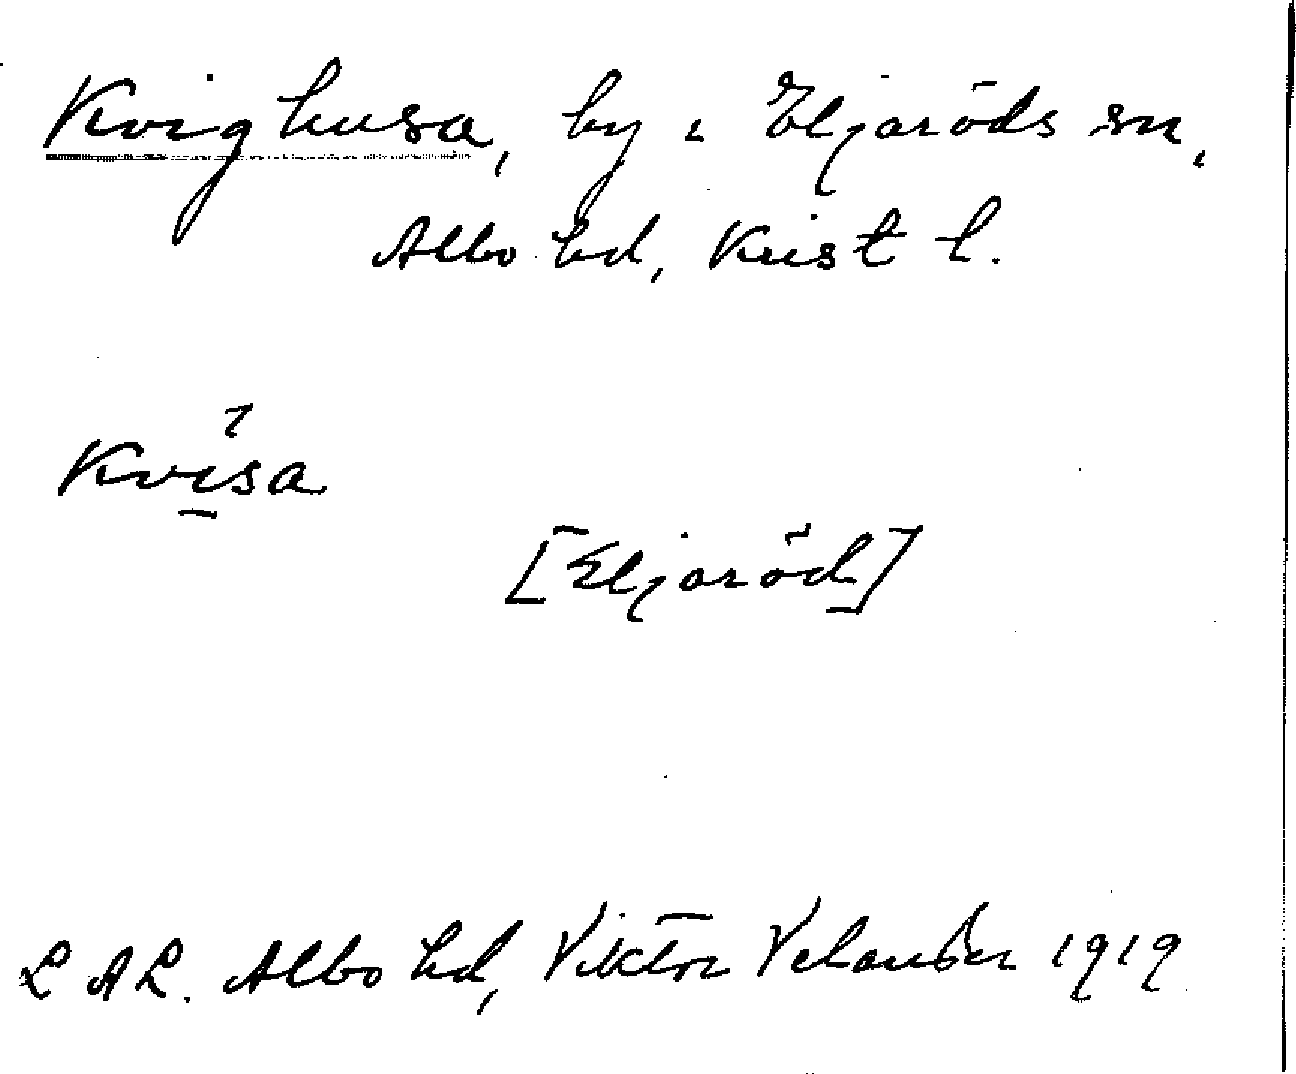 Kvighusa, by i Eljaröds sn,
Albo hd, Krist l.
Kvisa
[Eljaröd]
L A L. Albo hd, Viktor Velander 1919